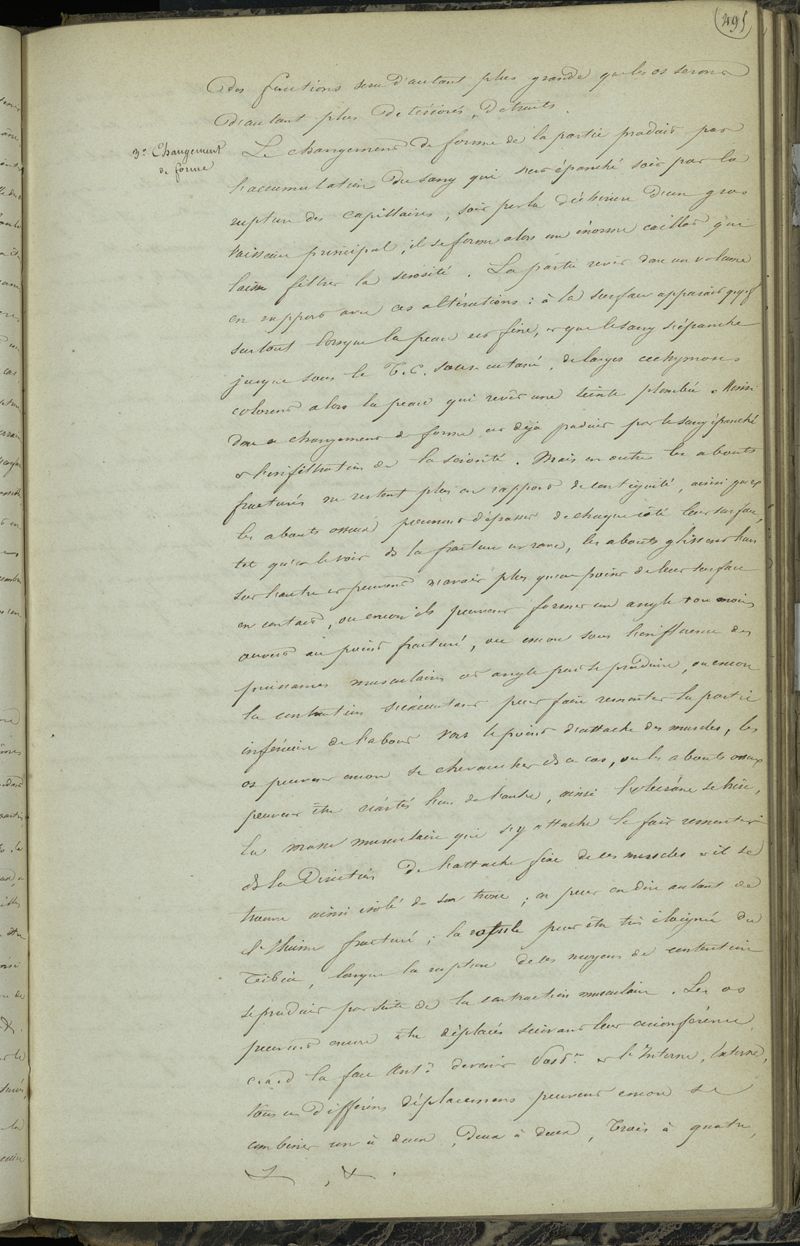 491
des fonctions sera d'autant plus grande que les os seront
d'autant plus détériorés, détruits.
3° Changement
de forme
Le changement de forme de la partie produit par
l'accumulation du sang qui s'est épanché soit par la
rupture des capillaires, soit par la déchirure d'un gros
vaisseau principal, il se forme alors un énorme caillot qui
laisse filtrer la sérosité. La partie revêt donc un volume
en rapport avec ces altérations : à la surface apparait
surtout lorsque la peau est fine, et que le sang s'épanche
jusque sous le T. C. sous cutané, de larges ecchymoses
colorent alors la peau qui revêt une teinte plombée. Ainsi
donc ce changement de forme est déjà produit par le sang épanché
et l'infiltration de la sérosité. Mais en outre les abouts
fracturés ne restent plus en rapport de contiguité, ainsi
les abouts osseux peuvent dépasser de chaque côté leur surface,
et qu'on le voir ds la fracture en rave, les abouts glissent l'un
sur l'autre et peuvent n'avoir plus qu'un point de leur surface
en contact, ou encore ils peuvent former un angle + ou moins
ouvert au point fracturé, ou encore sous l'influence des
puissances musculaires cet angle peut se produire, ou encore
la contention s'exécutant pour faire remonter la partie
inférieure de l'about vers le point d'attache des muscles, les
os peuvent encore se chevaucher ds ce cas, ou les abouts osseux
peuvent être écartés l'un de l'autre, ainsi l'olécrâne se brise,
la masse musculaire qui s'y attache le fait remonter
ds la direction de l'attache fixe de ces muscles et il se
trouve ainsi isolé de son tronc ; on peut en dire autant de
l'ilium fracturé ; la rotule peut être très éloignée du
Tibia, lorsque la rupture de ses moyens de contention
se produit par suite de la contraction musculaire. Les os
peuvent encore être déplacés suivant leur circonférence,
c.à.d la face Antre devenir Postre et l'Interne, Externe,
tous ces différents déplacements peuvent encore se
combiner un à deux, deux à deux, trois à quatre,
&, &.